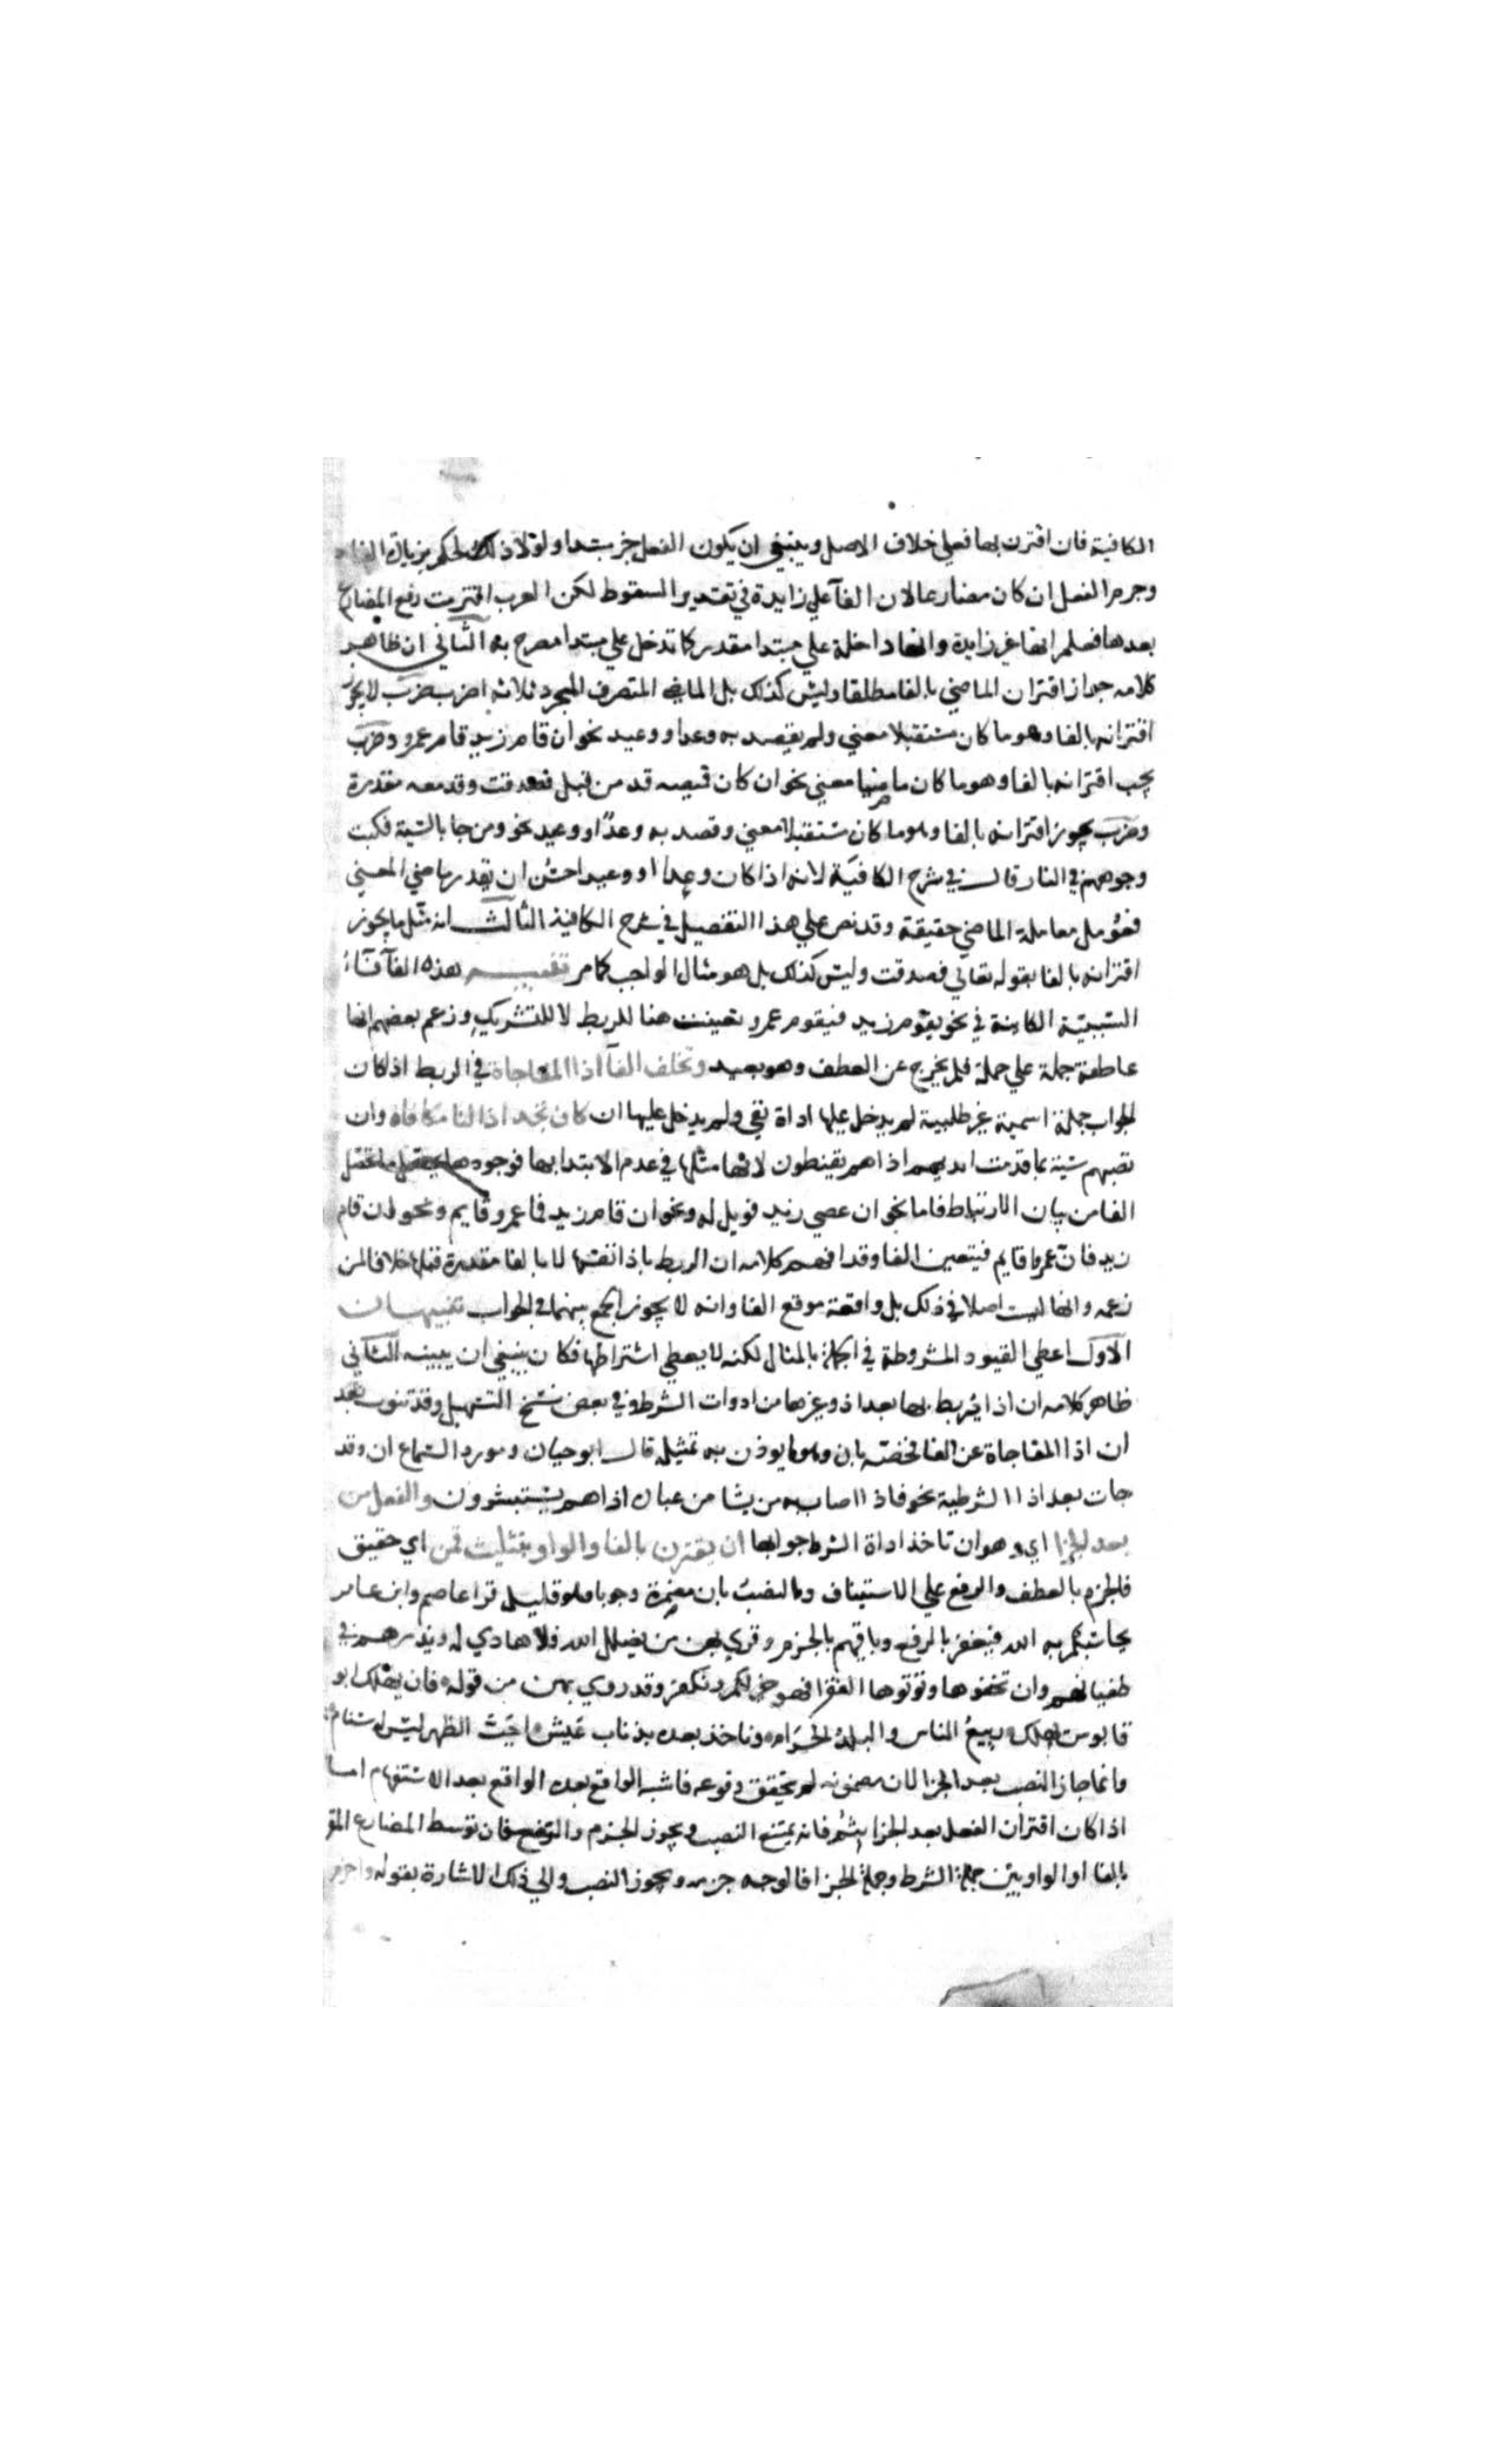 الكافية فان اقترن بها فعلي خلاف الاصل وينبغي ان يكون الفعل خبر مبتدا ولولا ذلك لحكم بزيادة الفاء
وجزم الفعل ان كان مضارعا لان الفآ علي زايدة في تقدير السقوط لكن العرب التزمت رفع المضارع
بعدها فعلم انها غير زايدة وانها داخلة علي مبتدا مقدر كما تدخل علي مبتدا مصرح به الثاني ان ظاهر
كلامه جواز اقتران الماضي بالفا مطلقا وليس كذلك بل الماضي المتصرف المجرد ثلاثة اضرب ضرب لا يجوز
اقترانه بالفا وهو ما كان مستقبلا معني ولم يقصد به وعد او وعيد نحو ان قام زيد قام عمرو وضرب
يجب اقترانه بالفا وهو ما كان ماضيا معني نحو ان كان قميصه قد من قبل فصدقت وقد معه مقدرة
وضرب يجوز اقترانه بالفا وهو ما كان مستقبلا معني وقصد به وعدًا او وعيد نحو ومن جا بالسيئة فكبت
وجوههم في النار قال في شرح الكافية لانه اذا كان وعدا او وعيدا حسُن ان يقدر ماضي المعني
فعُومل معاملة الماضي حقيقة وقد نص علي هذا التفصيل في شرح الكافية الثالث انه مثل ما يجوز
اقترانه بالفا بقوله تعالي فصدقت وليس كذلك بل هو مثال الواجب كما مر تنبيه هذه الفآ فآء
السببية الكاينة في نحو يقوم زيد فيقوم عمرو تعينت هنا للربط لا للتشريك وزعم بعضهم انها
عاطفة جملة علي جملة فلم يخرج عن العطف وهو بعيد وتخلف الفآ اذا المفاجاة في الربط اذا كان
الجواب جملة اسمية غير طلبية لم يدخل عليها اداة نفي ولم يدخل عليها ان كان تجد اذا لنا مكافاة وان
تصبهم سيئة بما قدمت ايديهم اذا هم يقنطون لانها مثلها في عدم الابتدا بها فوجودها يحصل ما تحصل
الفا من بيان الارتباط فاما نحو ان عصي زيد فويل له ونحو ان قام زيد فما عمرو قايم ونحو ان قام
زيد فان عمروا قايم فيتعين الفا وقد افهم كلامه ان الربط باذا نفسها لا بالفا مقدرة قبلها خلافا لمن
زعمه وانها ليست اصلا في ذلك بل واقعة موقع الفا وانه لا يجوز الجمع بينهما في الجواب تنبيهان
الاول اعطي القيود المشروطة في الجملة بالمثال لكنه لا يعطي اشتراطها فكان ينبغي ان يبينه الثاني
ظاهر كلامه ان اذا يُربط بها بعد اذ وغيرها من ادوات الشرط وفي بعض نسخ التسهيل وقد تنوب بعد
ان اذا المفاجاة عن الفا فخصه بان وهو ما يوذن به تمثيله قال ابو حيان ومورد السماع ان وقد
جات بعد اذا الشرطية نحو فاذا اصاب به من يشا من عباده اذا هم يستبشرون والفعل من
بعد الجزا اي وهو ان تاخذ اداة الشرط جوابها ان يقترن بالفا والواو بتثليث قمن اي حقيق
فالجزم بالعطف والرفع علي الاستيناف والنصب بان مضمرة وجوبا وهو قليل قرا عاصم وابن عامر
يحاسبكم به الله فيغفر بالرفع وباقيهم بالجزم وقري بهن من يضلل الله فلا هادي له ويذرهم في
طغيانهم وان تخفوها وتوتوها الفقرا فهو خير لكم ونكفر وقد روي بهن من قوله فان يهلك ابو
قابوس يهلك ربيعُ الناس والبلدُ الحرام وناخذ بعده بذناب عَيش اجَبّ الظهر ليس له سنام
وانما جاز النصب بعد الجزا لان مضمونه لم يتحقق وقوعه فاشبه الواقع بعده الواقع بعد الاستفهام اما
اذا كان اقتران الفعل بعد الجزا بثُم فانه يمتنع النصب ويجوز الجزم والرفع فان توسط المضارع المقرون
بالفا او الواو بين جملة الشرط وجملة الجزا فالوجه جزمه ويجوز النصب والي ذلك الاشارة بقوله وجزم